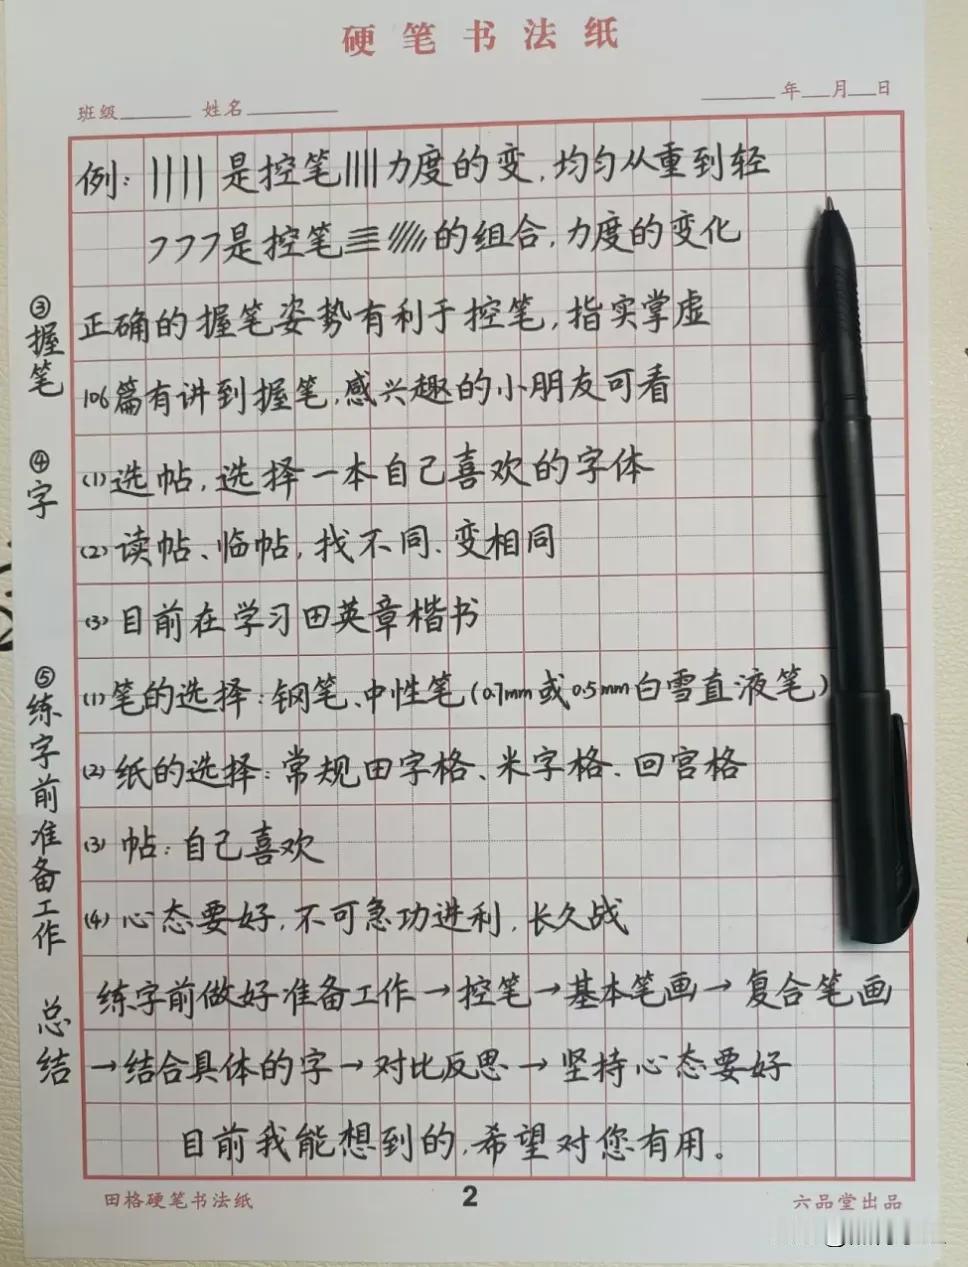 硬笔书法纸
班级 姓名 年 月 日
例: 是控笔 力度的变,均匀从重到轻
是控笔 的组合,力度的变化
③握笔
正确的握笔姿势有利于控笔,指实掌虚
106篇有讲到握笔,感兴趣的小朋友可看
④字
(1)选帖,选择一本自己喜欢的字体
(2)读帖、临帖,找不同、变相同
(3)目前在学习田英章楷书
⑤练字前准备工作
(1)笔的选择:钢笔、中性笔(0.7mm或0.5mm白雪直液笔)
(2)纸的选择:常规田字格、米字格、回宫格
(3)帖:自己喜欢
(4)心态要好,不可急功进利,长久战
总结
练字前做好准备工作→控笔→基本笔画→复合笔画
→结合具体的字→对比反思→坚持心态要好
目前我能想到的,希望对您有用。
田格硬笔书法纸 2 六品堂出品